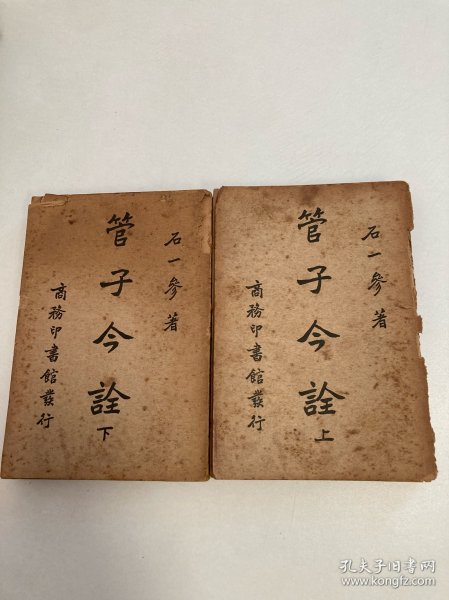 石一參著
管子今詮
下
商務印書館發行
石一參著
管子今詮
上
商務印書館發行
孔夫子旧书网
www.kongfz.com